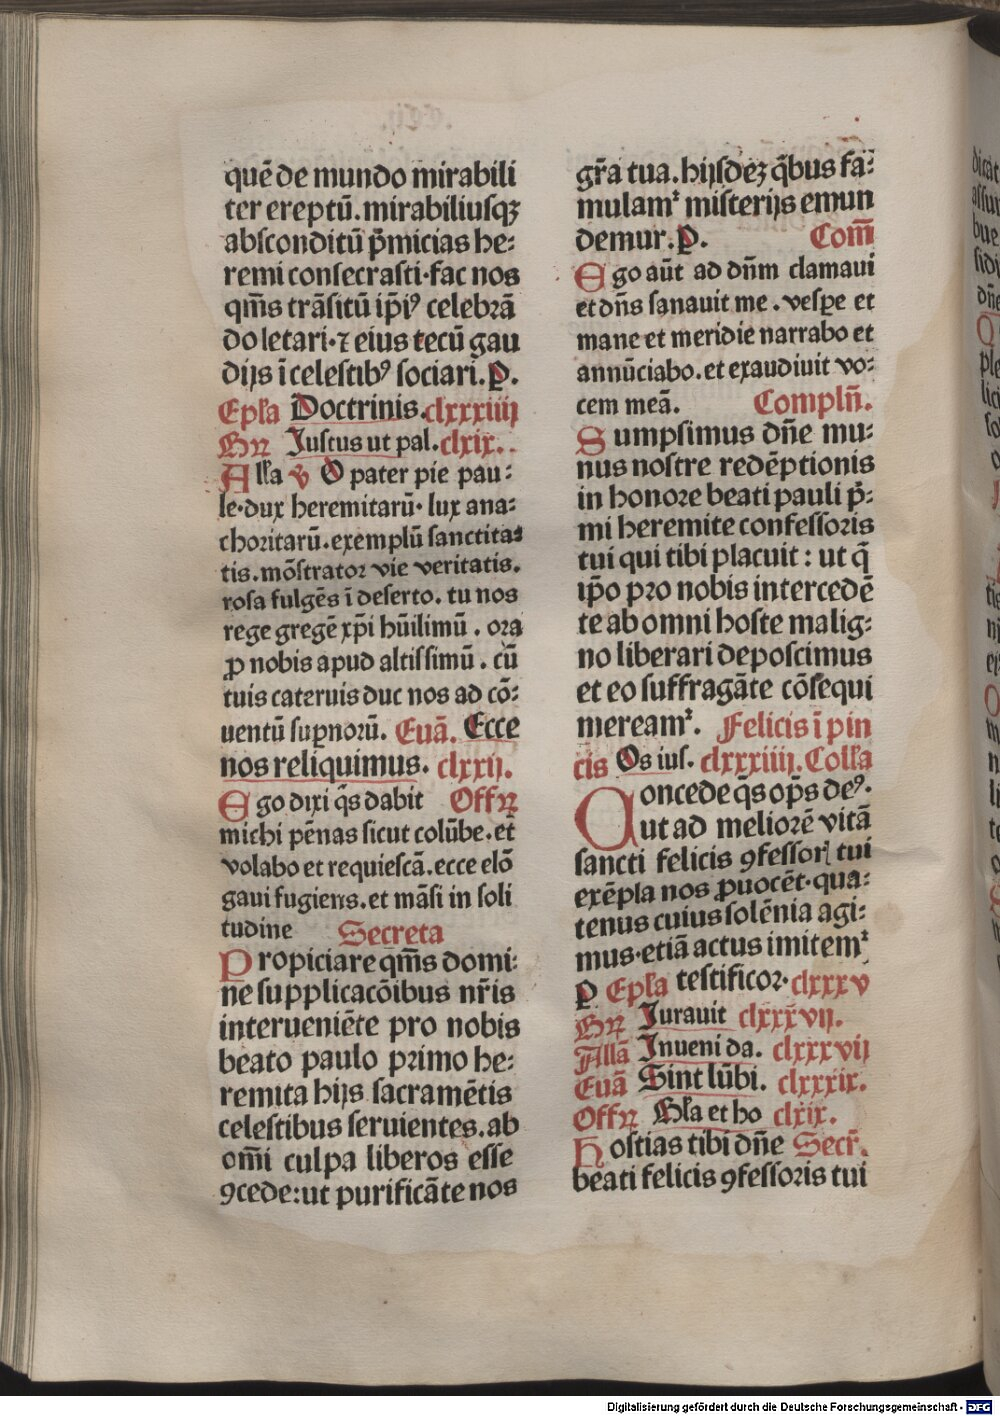 quē de mundo mirabili
ter ereptū. mirabiliusqꝫ
absconditū p̄micias he⸗
remi consecrasti·fac nos
qm̄s trāsitū ip̄iꝰ celebrā
do letari·⁊ eius tecū gau
dijs ī celestibꝰ sociari. P.
Epl̄a Doctrinis. clxxxiiij
Gꝛ Justus ut pal. clxix.
All̄a v O pater pie pau⸗
le·dux heremitarū· lux ana⸗
choritarū. exemplū sanctita⸗
tis. mōstrator vie veritatis.
rosa fulgēs ī deserto. tu nos
rege gregē xp̄i hūilimū. ora
ꝓ nobis apud altissimū. cū
tuis cateruis duc nos ad cō⸗
uentū suꝑnorū. Euā. Ecce
nos reliquimus. clxxij.
Ego dixi q̄s dabit Offꝛ
michi pēnas sicut colūbe. et
volabo et requiescā. ecce elō
gaui fugiens. et māsi in soli
tudine Secreta
Propiciare qm̄s domi⸗
ne supplicacōibus nr̄is
interueniēte pro nobis
beato paulo primo he⸗
remita hijs sacramētis
celestibus seruientes. ab
om̄i culpa liberos esse
ꝯcede: ut purificāte nos
gr̄a tua. hijsdeꝫ q̄bus fa⸗
mulamꝛ misterijs emun
demur. P. Com̄
Ego aūt ad dn̄m clamaui
et dn̄s sanauit me. vesꝑe et
mane et meridie narrabo et
annūciabo. et exaudiuit vo⸗
cem meā. Compln̄.
Sumpsimus dn̄e mu⸗
nus nostre redēptionis
in honore beati pauli p̄⸗
mi heremite confessoris
tui qui tibi placuit: ut q̄
ip̄o pro nobis intercedē
te ab omni hoste malig⸗
no liberari deposcimus
et eo suffragāte cōsequi
mereamꝛ. Felicis ī pin
cis Os ius. clxxxiiij. Coll̄a
Concede q̄s op̄s deꝰ.
ut ad meliorē vitā
sancti felicis ꝯfessorꝭ tui
exēpla nos ꝓuocēt·qua⸗
tenus cuius solēnia agi⸗
mus·etiā actus imitemꝛ
P Epl̄a testificor· clxxxv
Gꝛ Jurauit clxxxvij.
All̄ā Inueni da. clxxxvij
Euā Sint lūbi. clxxxix.
Offꝛ Gl̄a et ho clxix.
Hostias tibi dn̄e Secr̄.
beati felicis ꝯfessoris tui
Digitalisierung gefördert durch die Deutsche Forschungsgemeinschaft - DFG